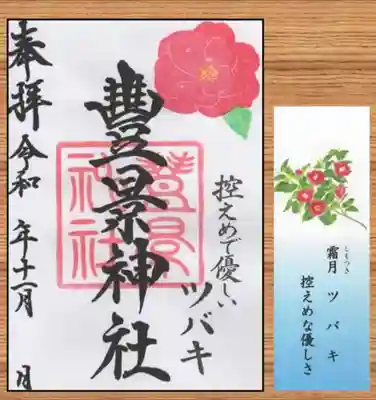 奉拝
令和 年十一月 月
豊景神社
豊景神社
控えめで優しい
ツバキ
しもつき
霜月 ツバキ
控えめな優しさ